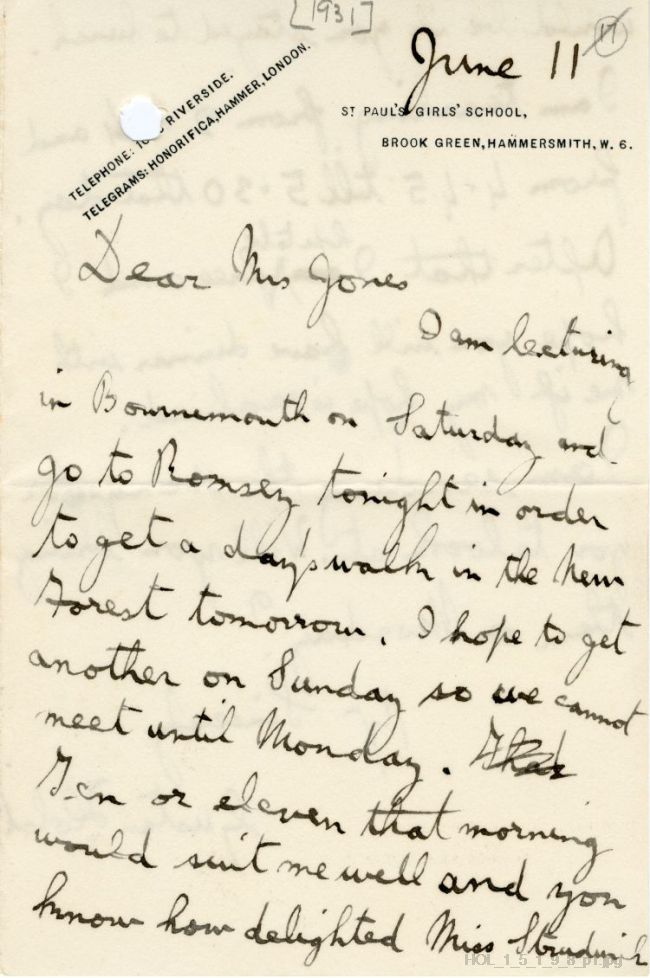 [1931]
17
June 11
TELEPHONE: RIVERSIDE.
TELEGRAMS: HONORIFICA, HAMMER, LONDON.
ST PAUL'S GIRLS' SCHOOL,
BROOK GREEN, HAMMERSMITH, W. 6.
Dear Mrs Jones
I am lecturing
in Bournemouth on Saturday and
go to Romsey tonight in order
to get a day's walk in the New
Forest tomorrow. I hope to get
another on Sunday so we cannot
meet until Monday.
Ten or eleven that morning
would suit me well and you
know how delighted Miss Strudwick
HOL_1_5_1_9_8 p1.jpg